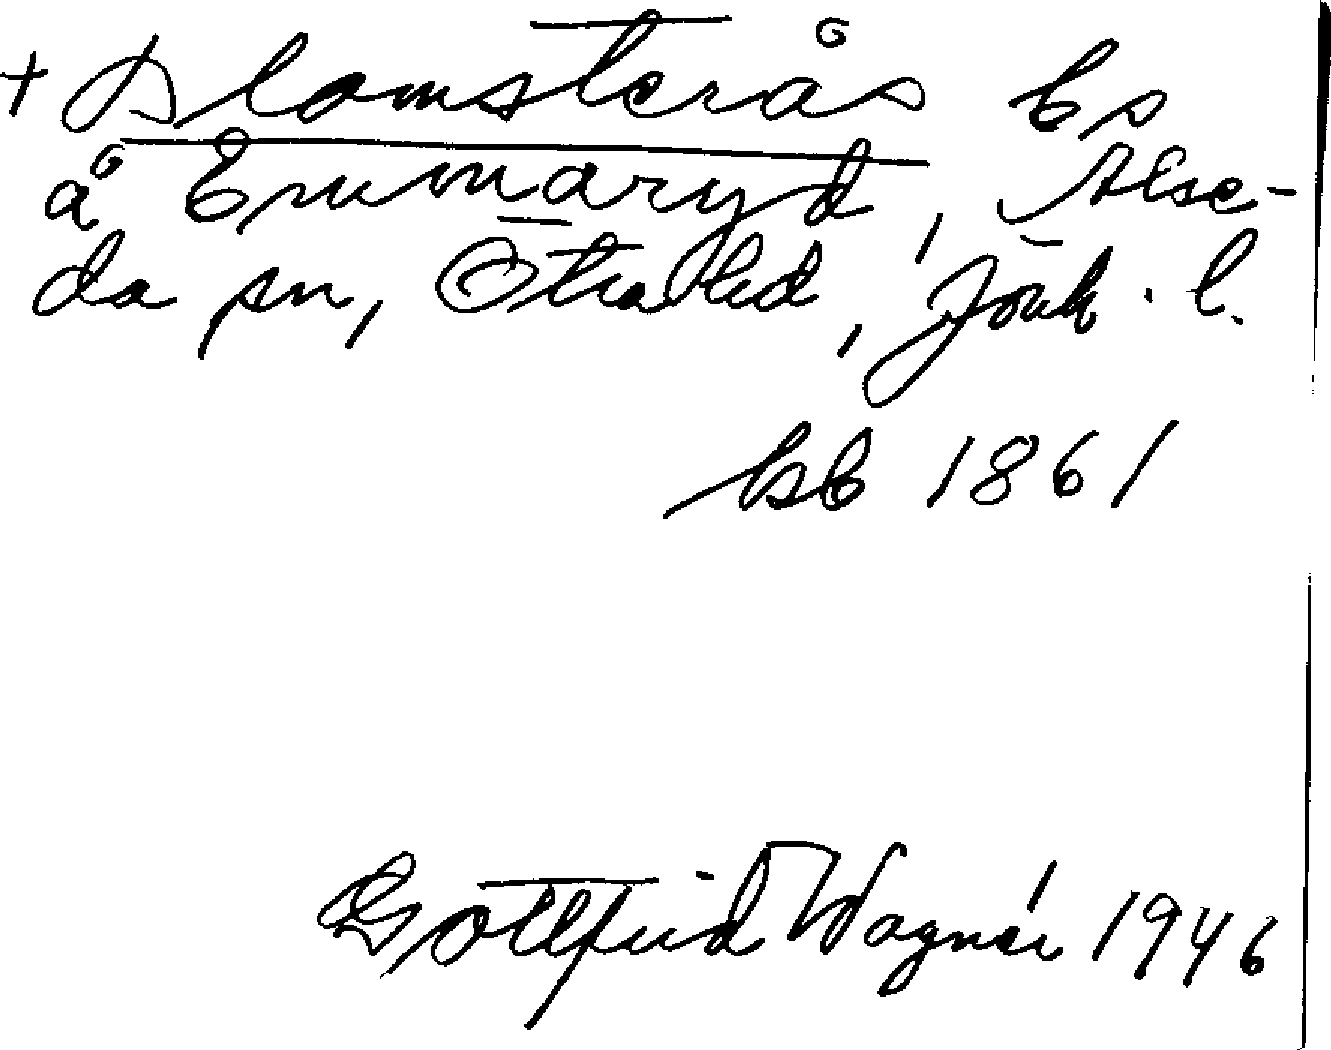 + Blomsterås bs
å Emmaryd, Alse-
da sn, Östra hd, Jönk. l.
hsb 1861
Gottfrid Wagnér 1946